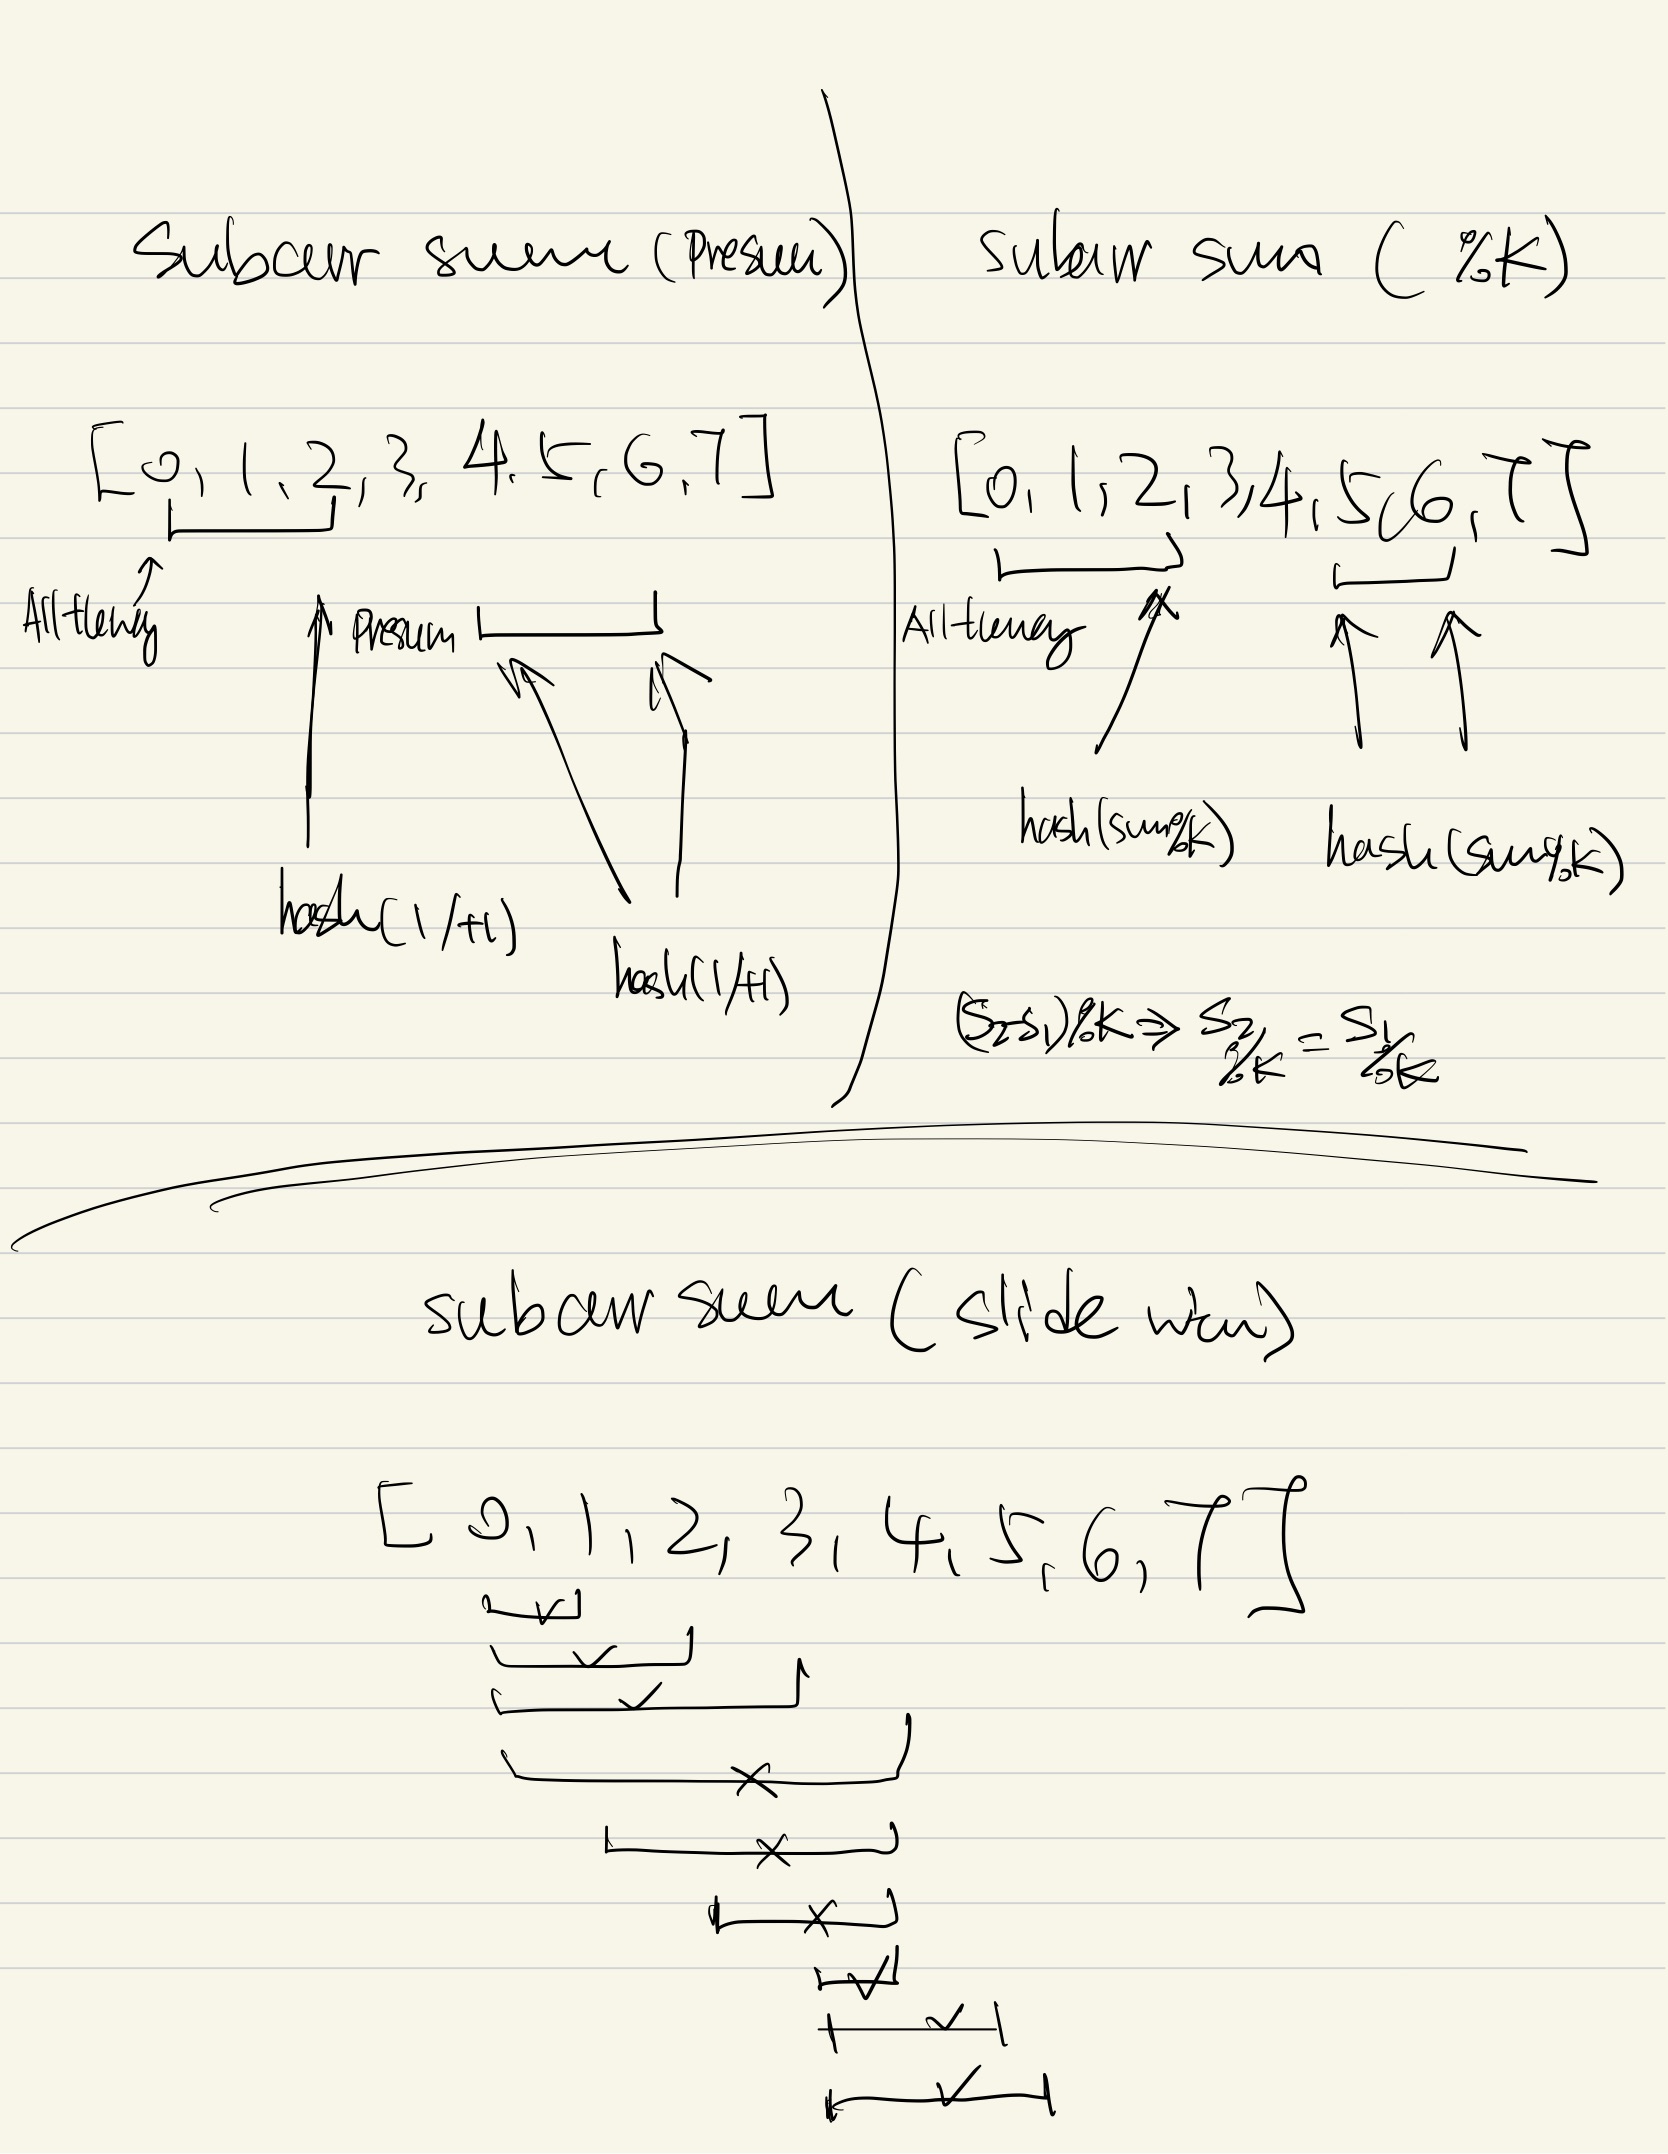 subarr sum (presum)
[0, 1, 2, 3, 4, 5, 6, 7]
presum
hash(1/+1)
hash(1/+1)
subarr sum ( %K)
[0, 1, 2, 3, 4, 5, 6, 7]
hash(sum%K)
hash(sum%K)
(S2-S1)%K => S2%K = S1%K
subarr sum (slide win)
[0, 1, 2, 3, 4, 5, 6, 7]